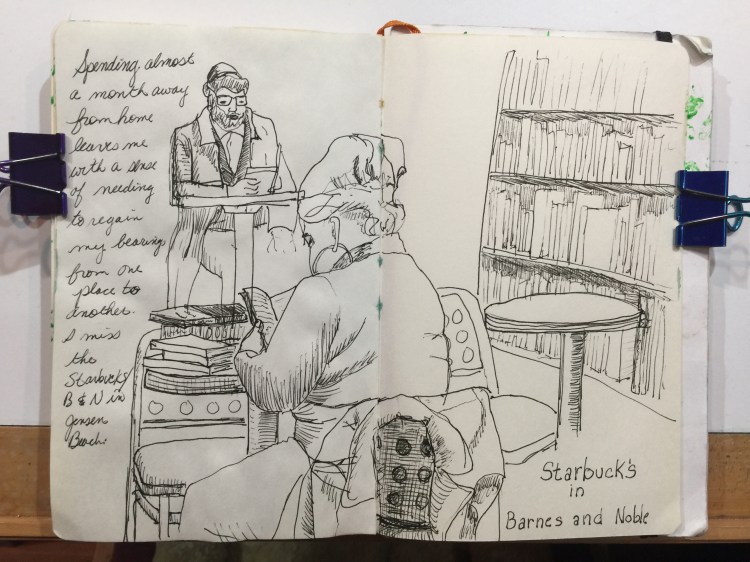 Spending almost
a month away
from home
leaves me
with a sense
of needing
to regain
my bearing
from one
place to
another.
I miss
the
Starbucks
B & N in
Jensen
Beach.
Starbuck's
in
Barnes and Noble